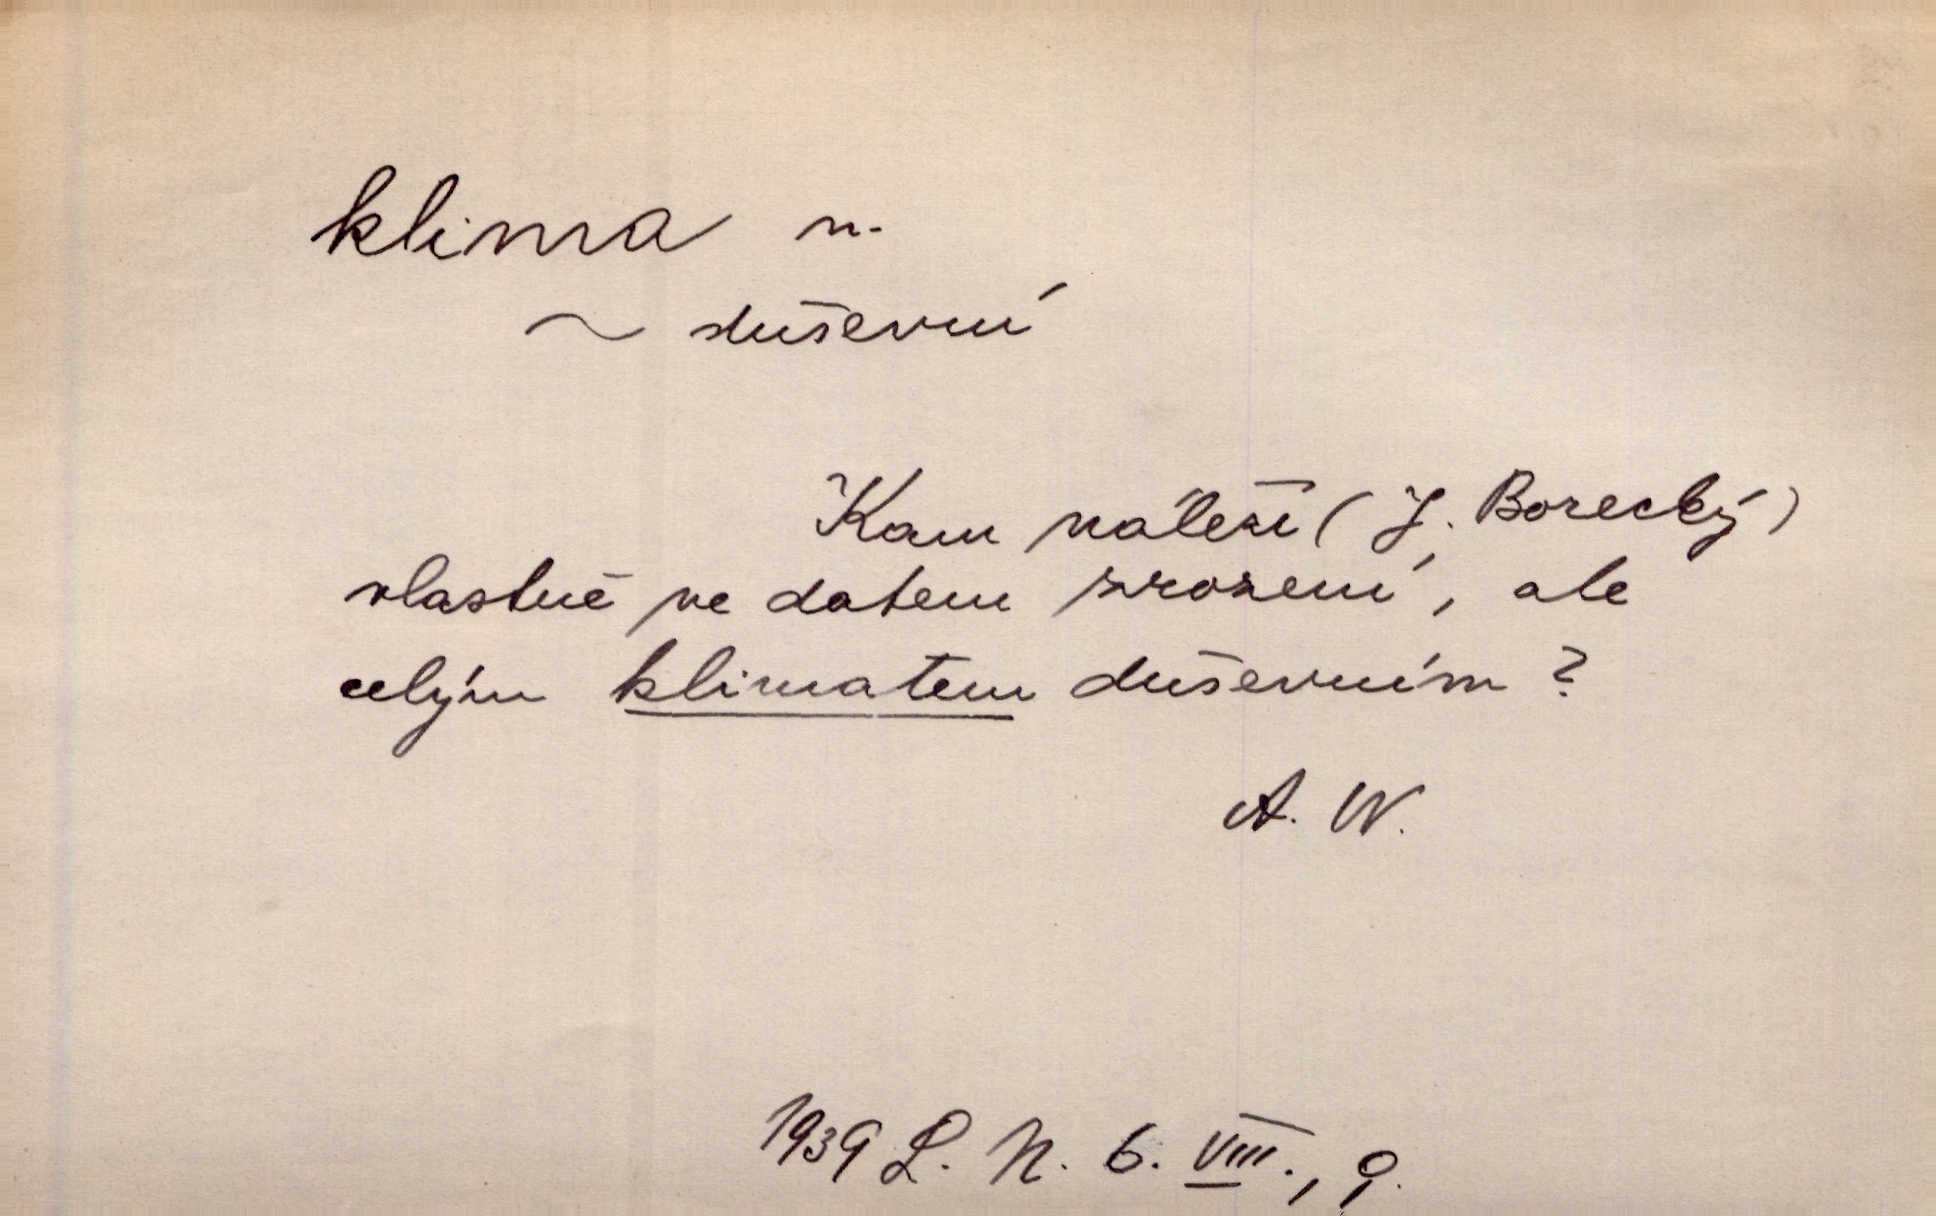 klima n.
~ duševní
Kam náleží (J. Borecký)
vlastně ne datem zrození, ale
celým klimatem duševním?
A. W.
1939 L. N. 6. VIII., 9.